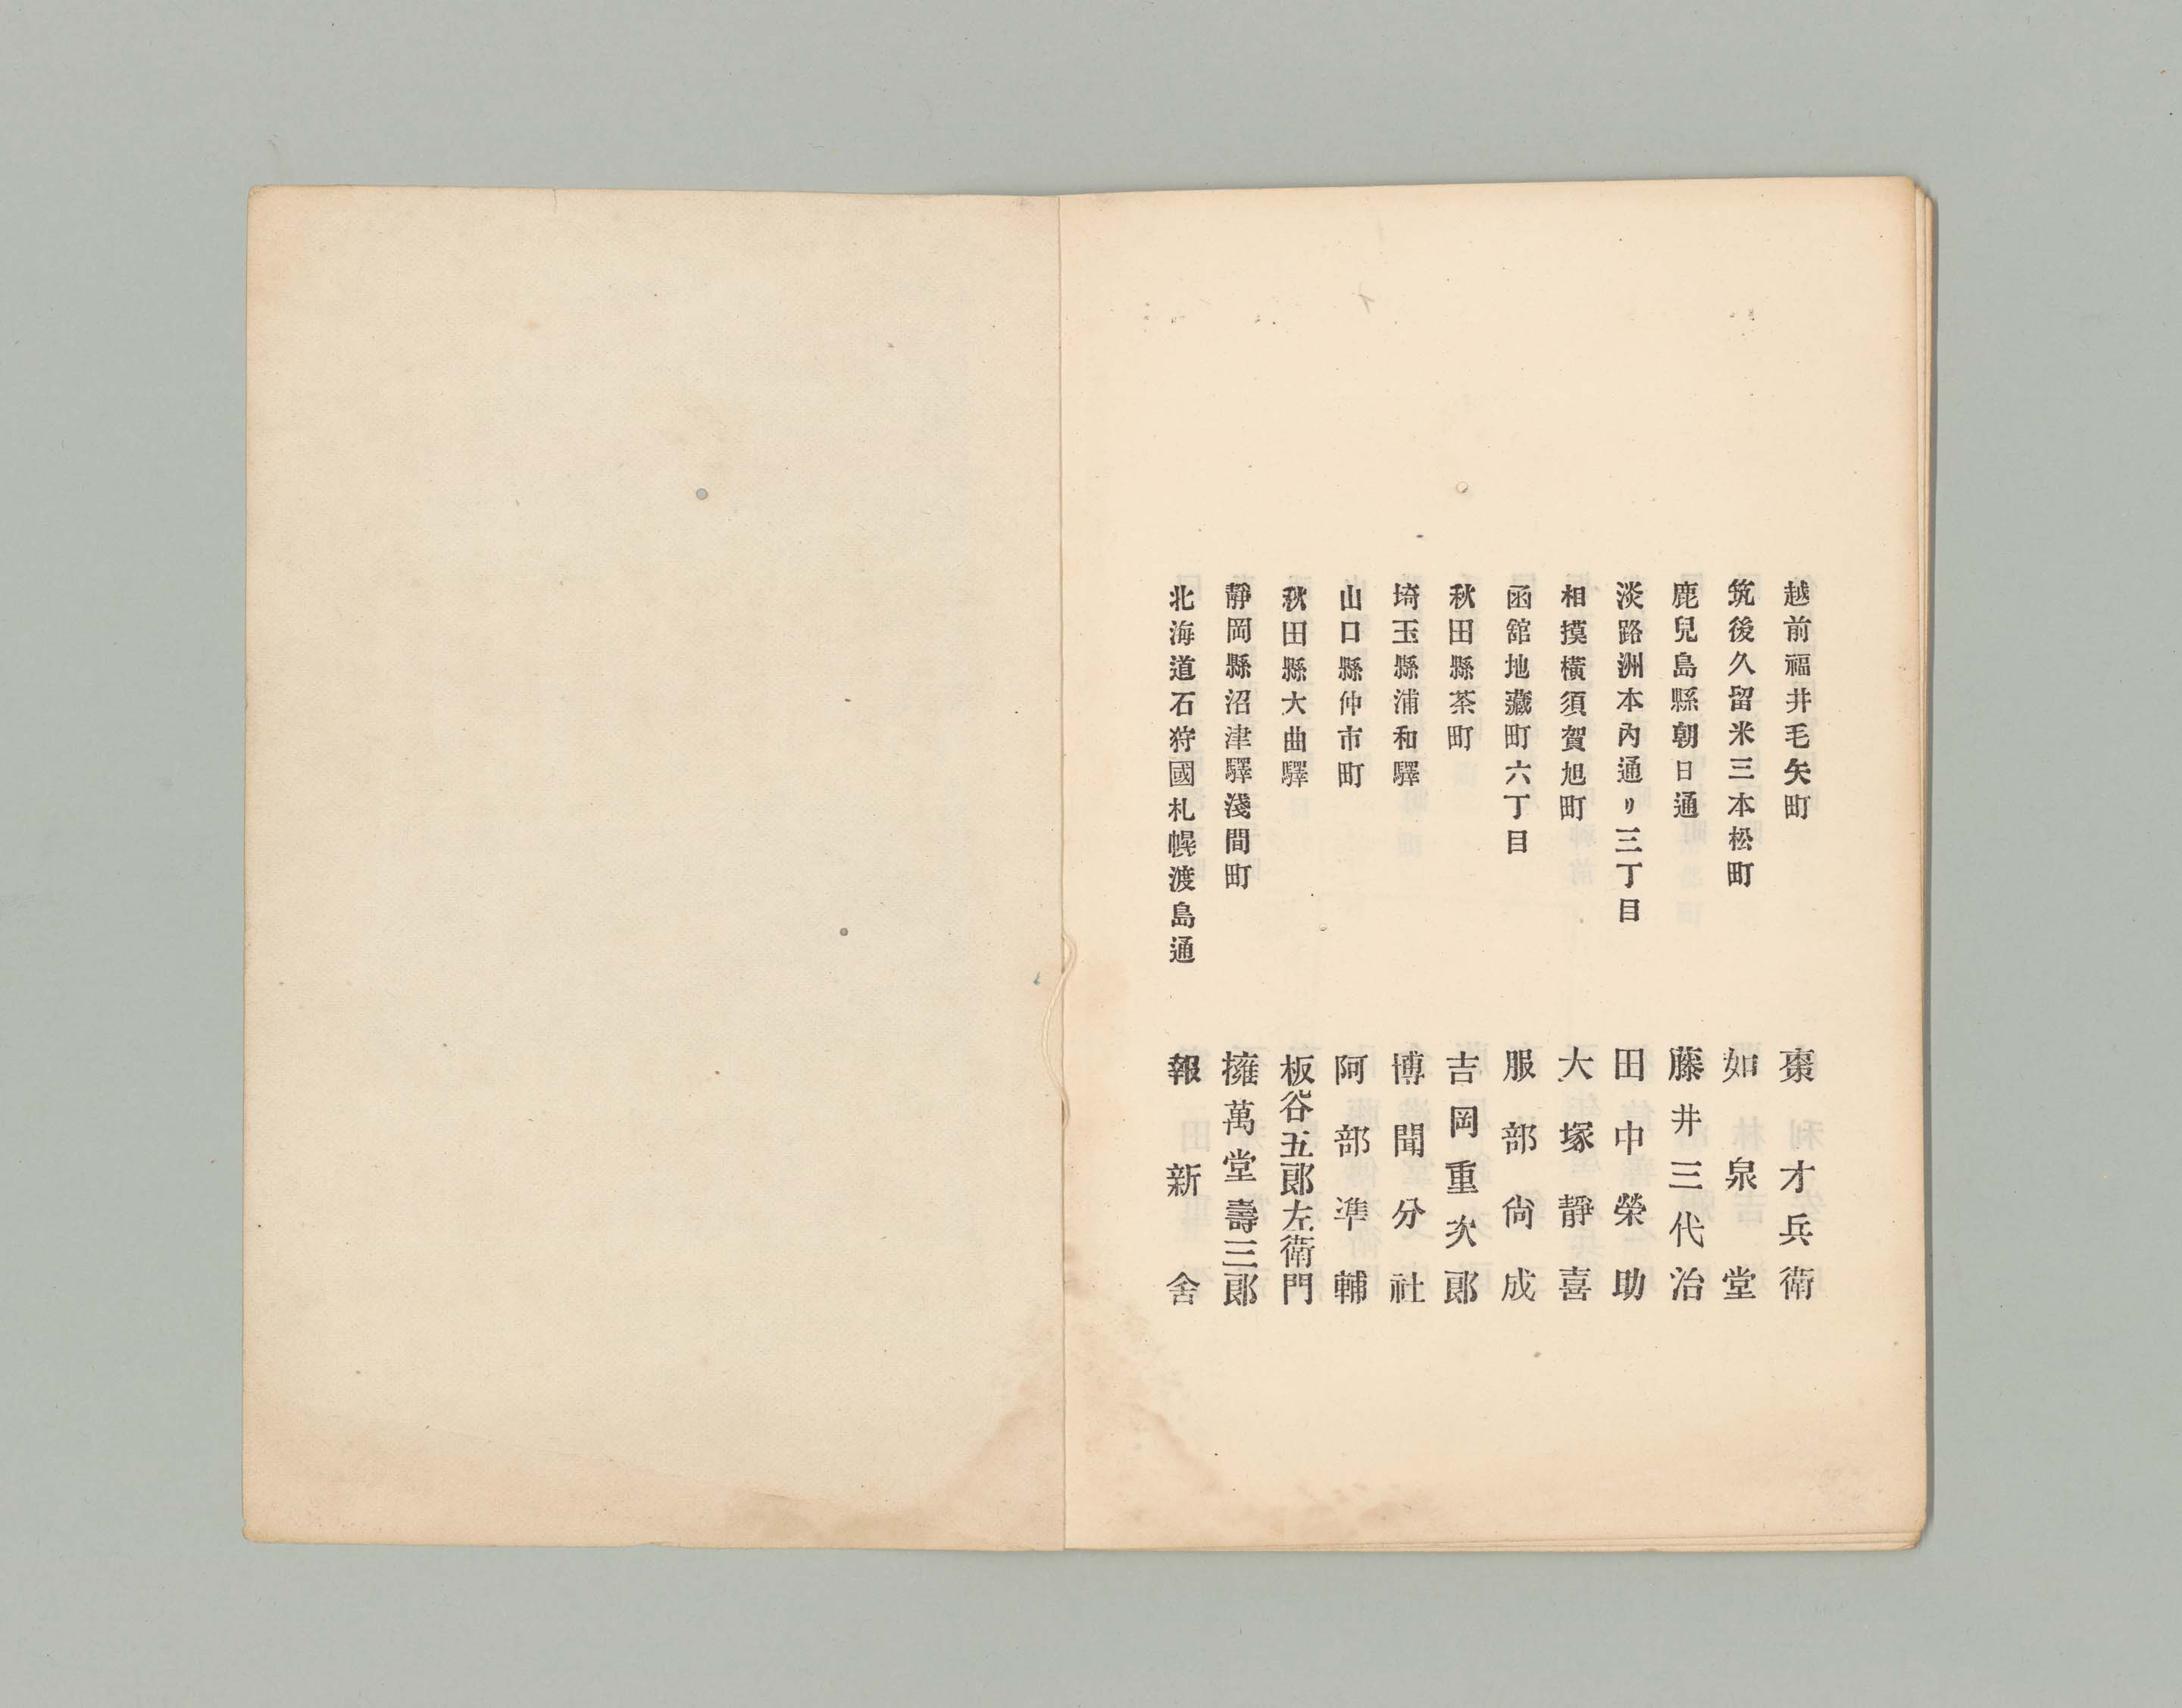 越前福井毛矢町 棗才兵衛
筑後久留米三本松町 如泉堂
鹿兒島縣朝日通 藤井三代治
淡路洲本內通リ三丁目 田中榮助
相摸橫須賀旭町 大塚靜喜
函舘地藏町六丁目 服部尙成
秋田縣茶町 吉岡重次郞
埼玉縣浦和驛 博聞分社
山口縣仲市町 阿部準輔
秋田縣大曲驛 板谷五郞左衞門
靜岡縣沼津驛淺間町 擁萬堂壽三郞
北海道石狩國札幌渡島通 報新舍